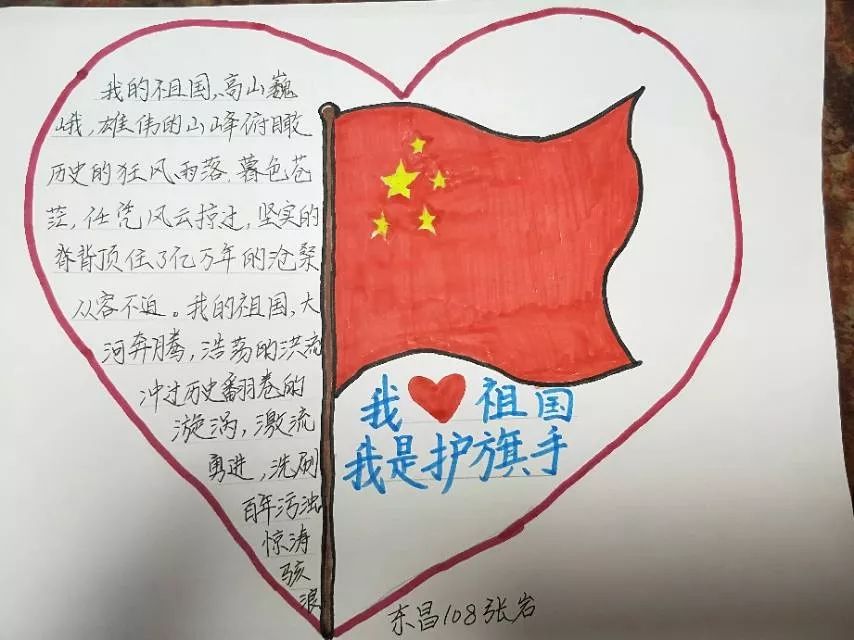 我的祖国,高山巍
峨,雄伟的山峰俯瞰
历史的狂风雨落,暮色苍
茫,任凭风云掠过,坚实的
脊背顶住了亿万年的沧桑
从容不迫。我的祖国,大
河奔腾,浩荡的洪流
冲过历史翻卷的
漩涡,激流
勇进,洗刷
百年污浊
惊涛
骇
浪
我❤祖国
我是护旗手
东昌108张岩